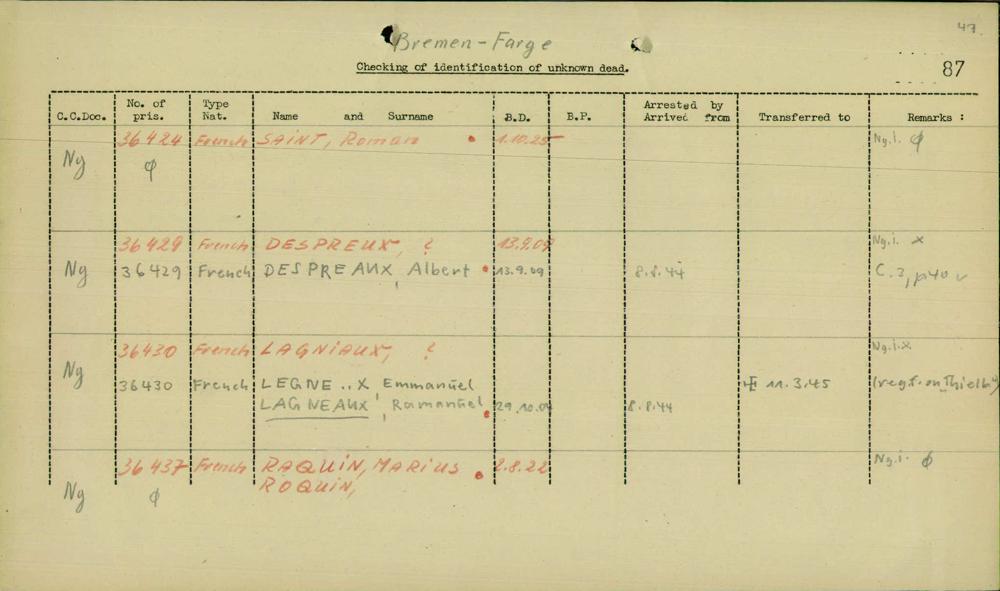 47.
Bremen-Farge
Checking of identification of unknown dead.
87
C.C.Doc. No. of pris. Type Nat. Name and Surname B.D. B.P. Arrested by Arrived from Transferred to Remarks :
36424 French SAINT, Roman 1.10.25 Ng.i. ϕ
Ng ϕ
36429 French DESPREUX, ? 13.9.09 Ng.i. x
Ng 36429 French DESPREAUX, Albert 13.9.09 8.8.44 C.3, p40 v
36430 French LAGNIAUX, ? Ng.i.x
Ng 36430 French LEGNE..X, Emmanuel 11.3.45
LAGNEAUX, Romanuel 29.10.09 8.8.44
36437 French RAQUIN, MARIUS 2.8.22 Ng.i. ϕ
Ng ϕ ROQUIN,